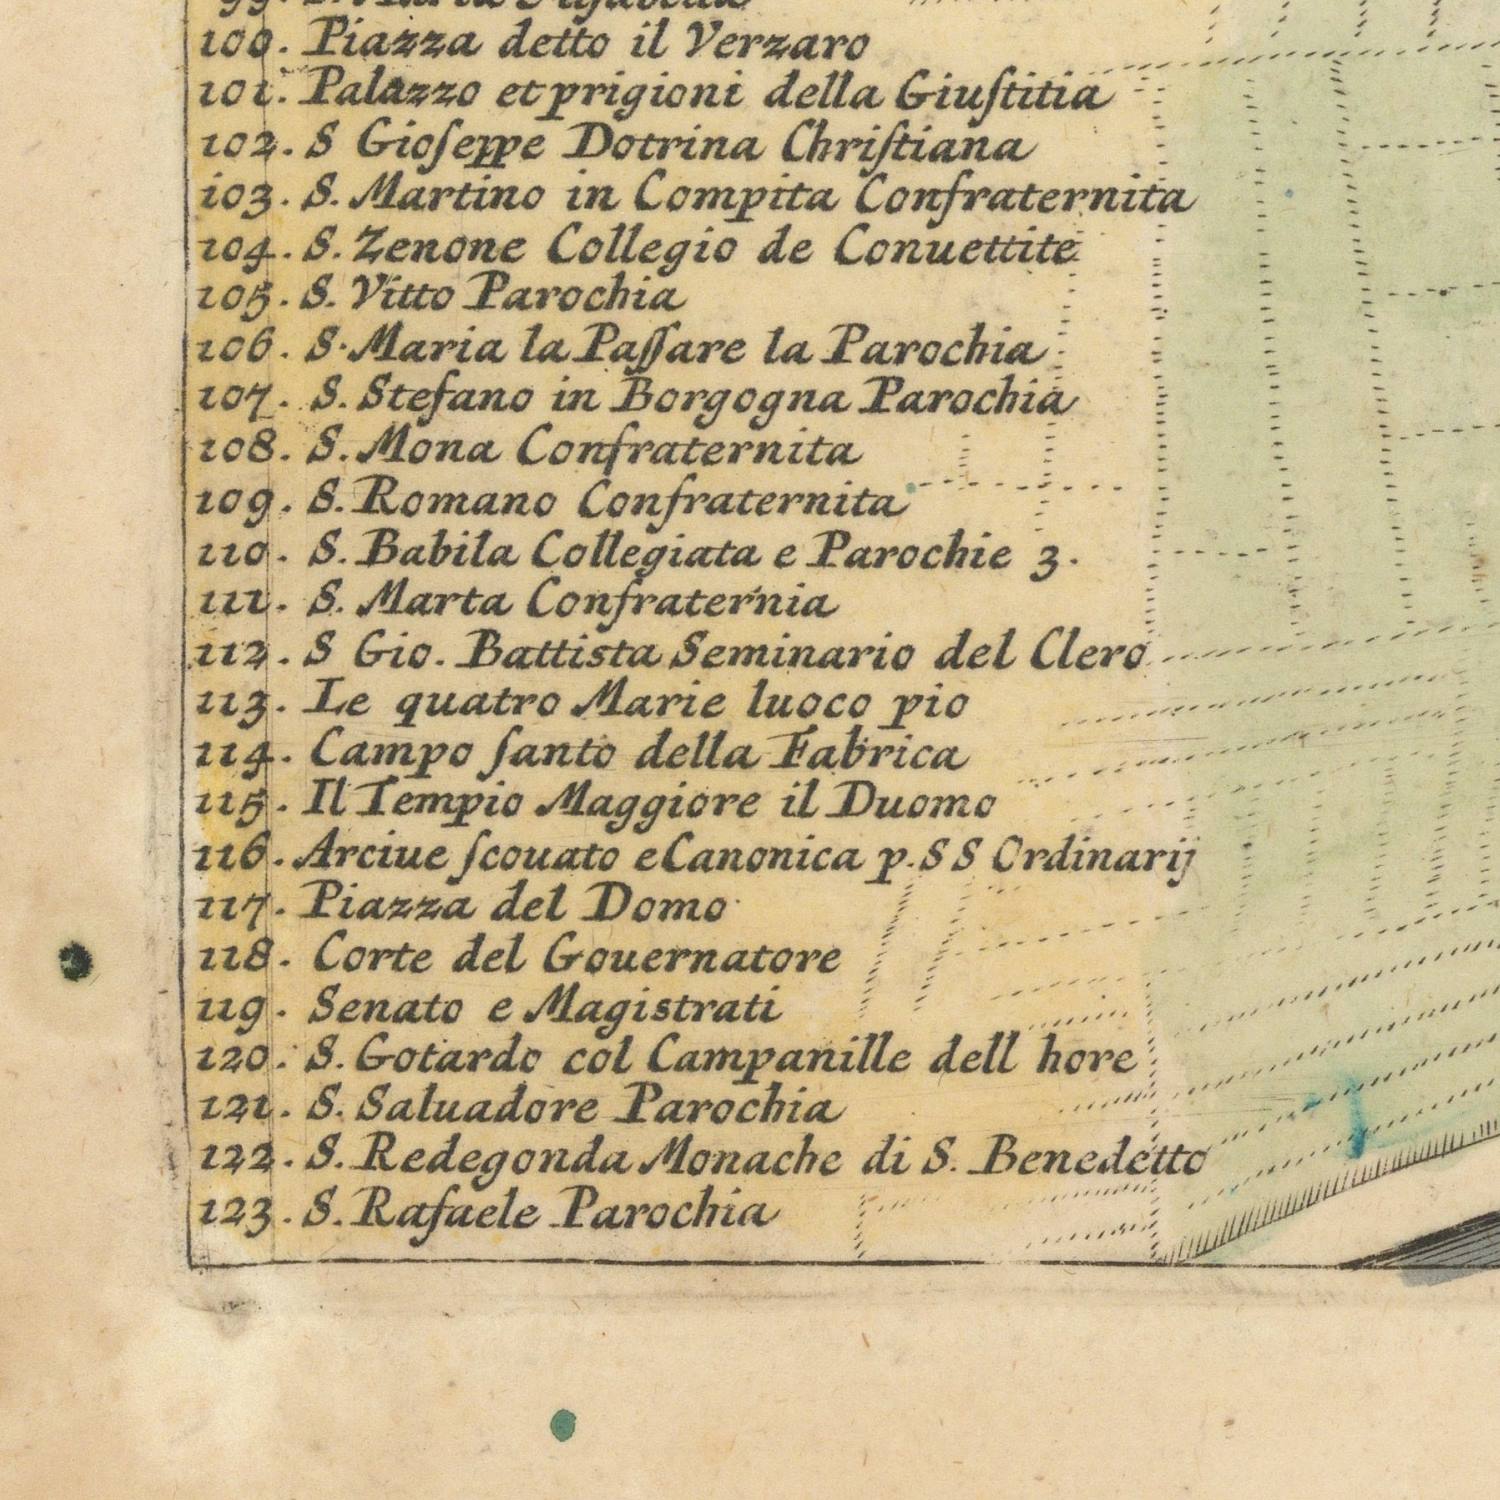 99. S. Maria Elisabetta
100. Piazza detto il Verzaro
101. Palazzo et prigioni della Giuſtitia
102. S Gioſeppe Dotrina Chriſtiana
103. S. Martino in Compita Confraternita
104. S. Zenone Collegio de Conuettite
105. S. Vitto Parochia
106. S. Maria la Paſſare la Parochia
107. S. Stefano in Borgogna Parochia
108. S. Mona Confraternita
109. S. Romano Confraternita
110. S. Babila Collegiata e Parochie 3.
111. S. Marta Confraternia
112. S Gio. Battista Seminario del Clero
113. Le quatro Marie luoco pio
114. Campo ſanto della Fabrica
115. Il Tempio Maggiore il Duomo
116. Arciue ſcouato e Canonica p. S S Ordinarij
117. Piazza del Domo
118. Corte del Gouernatore
119. Senato e Magistrati
120. S. Gotardo col Campanille dell hore
121. S. Saluadore Parochia
122. S. Redegonda Monache di S. Benedetto
123. S. Rafaele Parochia